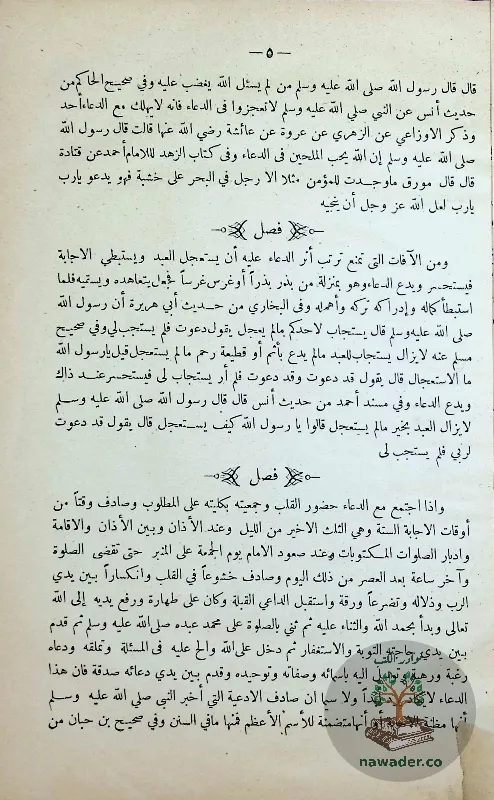 — ٥ —
قال قال رسول الله صلى الله عليه وسلم من لم يسئل الله يغضب عليه وفي صحيح الحاكم من
حديث أنس عن النبي صلي الله عليه وسلم لا تعجزوا فى الدعاء فانه لا يهلك مع الدعاء أحد
وذكر الاوزاعي عن الزهري عن عروة عن عائشة رضي الله عنها قالت قال رسول الله
صلى الله عليه وسلم إن الله يحب الملحين فى الدعاء وفى كتاب الزهد للامام أحمد عن قتادة
قال قال مورق ماوجدت للمؤمن مثلا الا رجل في البحر على خشبة فهو يدعو يارب
يارب لعل الله عز وجل أن ينجيه
فصل
ومن الآفات التى تمنع ترتب أثر الدعاء عليه أن يستعجل العبد ويستبطي الاجابة
فيستحسر ويدع الدعاء وهو بمنزلة من بذر بذراً أو غرس غرساً فجعل يتعاهده ويسقيه فلما
استبطأ كماله وإدراكه تركه وأهمله وفى البخاري من حديث أبي هريرة أن رسول الله
صلى الله عليه وسلم قال يستجاب لاحدكم مالم يعجل يقول دعوت فلم يستجب لي وفي صحيح
مسلم عنه لا يزال يستجاب للعبد مالم يدع بأثم أو قطيعة رحم مالم يستعجل قيل يارسول الله
ما الاستعجال قال يقول قد دعوت وقد دعوت فلم أر يستجاب لى فيستحسر عند ذاك
ويدع الدعاء وفي مسند أحمد من حديث أنس قال قال رسول الله صلى الله عليه وسلم
لا يزال العبد بخير مالم يستعجل قالوا يا رسول الله كيف يستعجل قال يقول قد دعوت
لربي فلم يستجب لى
فصل
واذا اجتمع مع الدعاء حضور القلب وجمعيته بكليته على المطلوب وصادف وقتاً من
أوقات الاجابة الستة وهي الثلث الاخير من الليل وعند الأذان وبين الأذان والاقامة
وادبار الصلوات المكتوبات وعند صعود الامام يوم الجمعة على المنبر حتى تقضى الصلوة
وآخر ساعة بعد العصر من ذلك اليوم وصادف خشوعاً في القلب وانكساراً بين يدي
الرب وذلاله وتضرعاً ورقة واستقبل الداعي القبلة وكان على طهارة ورفع يديه إلى الله
تعالى وبدأ بحمد الله والثناء عليه ثم ثني بالصلوة على محمد عبده صلى الله عليه وسلم ثم قدم
بين يدي حاجته التوبة والاستغفار ثم دخل على الله والح عليه في المسئلة وتملقه ودعاه
رغبة ورهبة وتوسل اليه باسمائه وصفاته وتوحيده وقدم بين يدي دعائه صدقة فان هذا
الدعاء لا يكاد يرد أبداً ولا سيما ان صادف الادعية التي أخبر النبي صلي الله عليه وسلم
أنها مظنة الاجابة أو أنها متضمنة للأسم الأعظم فمنها مافي السنن وفي صحيح بن حبان من
نوادر الكتب
nawader.co